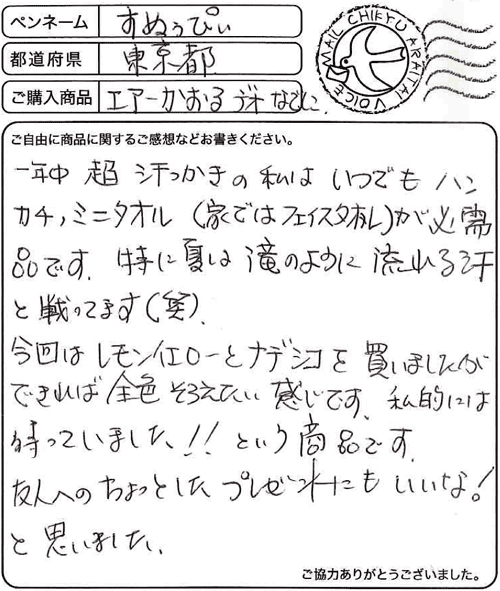 ペンネーム すぬぅぴぃ
都道府県 東京都
ご購入商品 エアーかおる
MAIL CHIKYU ARAITAI VOICE
ご自由に商品に関するご感想などお書きください。
一年中 超 汗っかきの私は いつでも ハン
カチ、ミニタオル (家ではフェイスタオル)が必需
品です。特に夏は滝のように流れる汗
と戦ってます(笑)。
今回はレモンイエローとナデシコを買いましたが
できれば全色そろえたい感じです。私的には
待っていました!! という商品です。
友人へのちょっとしたプレゼントにもいいな!
と思いました。
ご協力ありがとうございました。